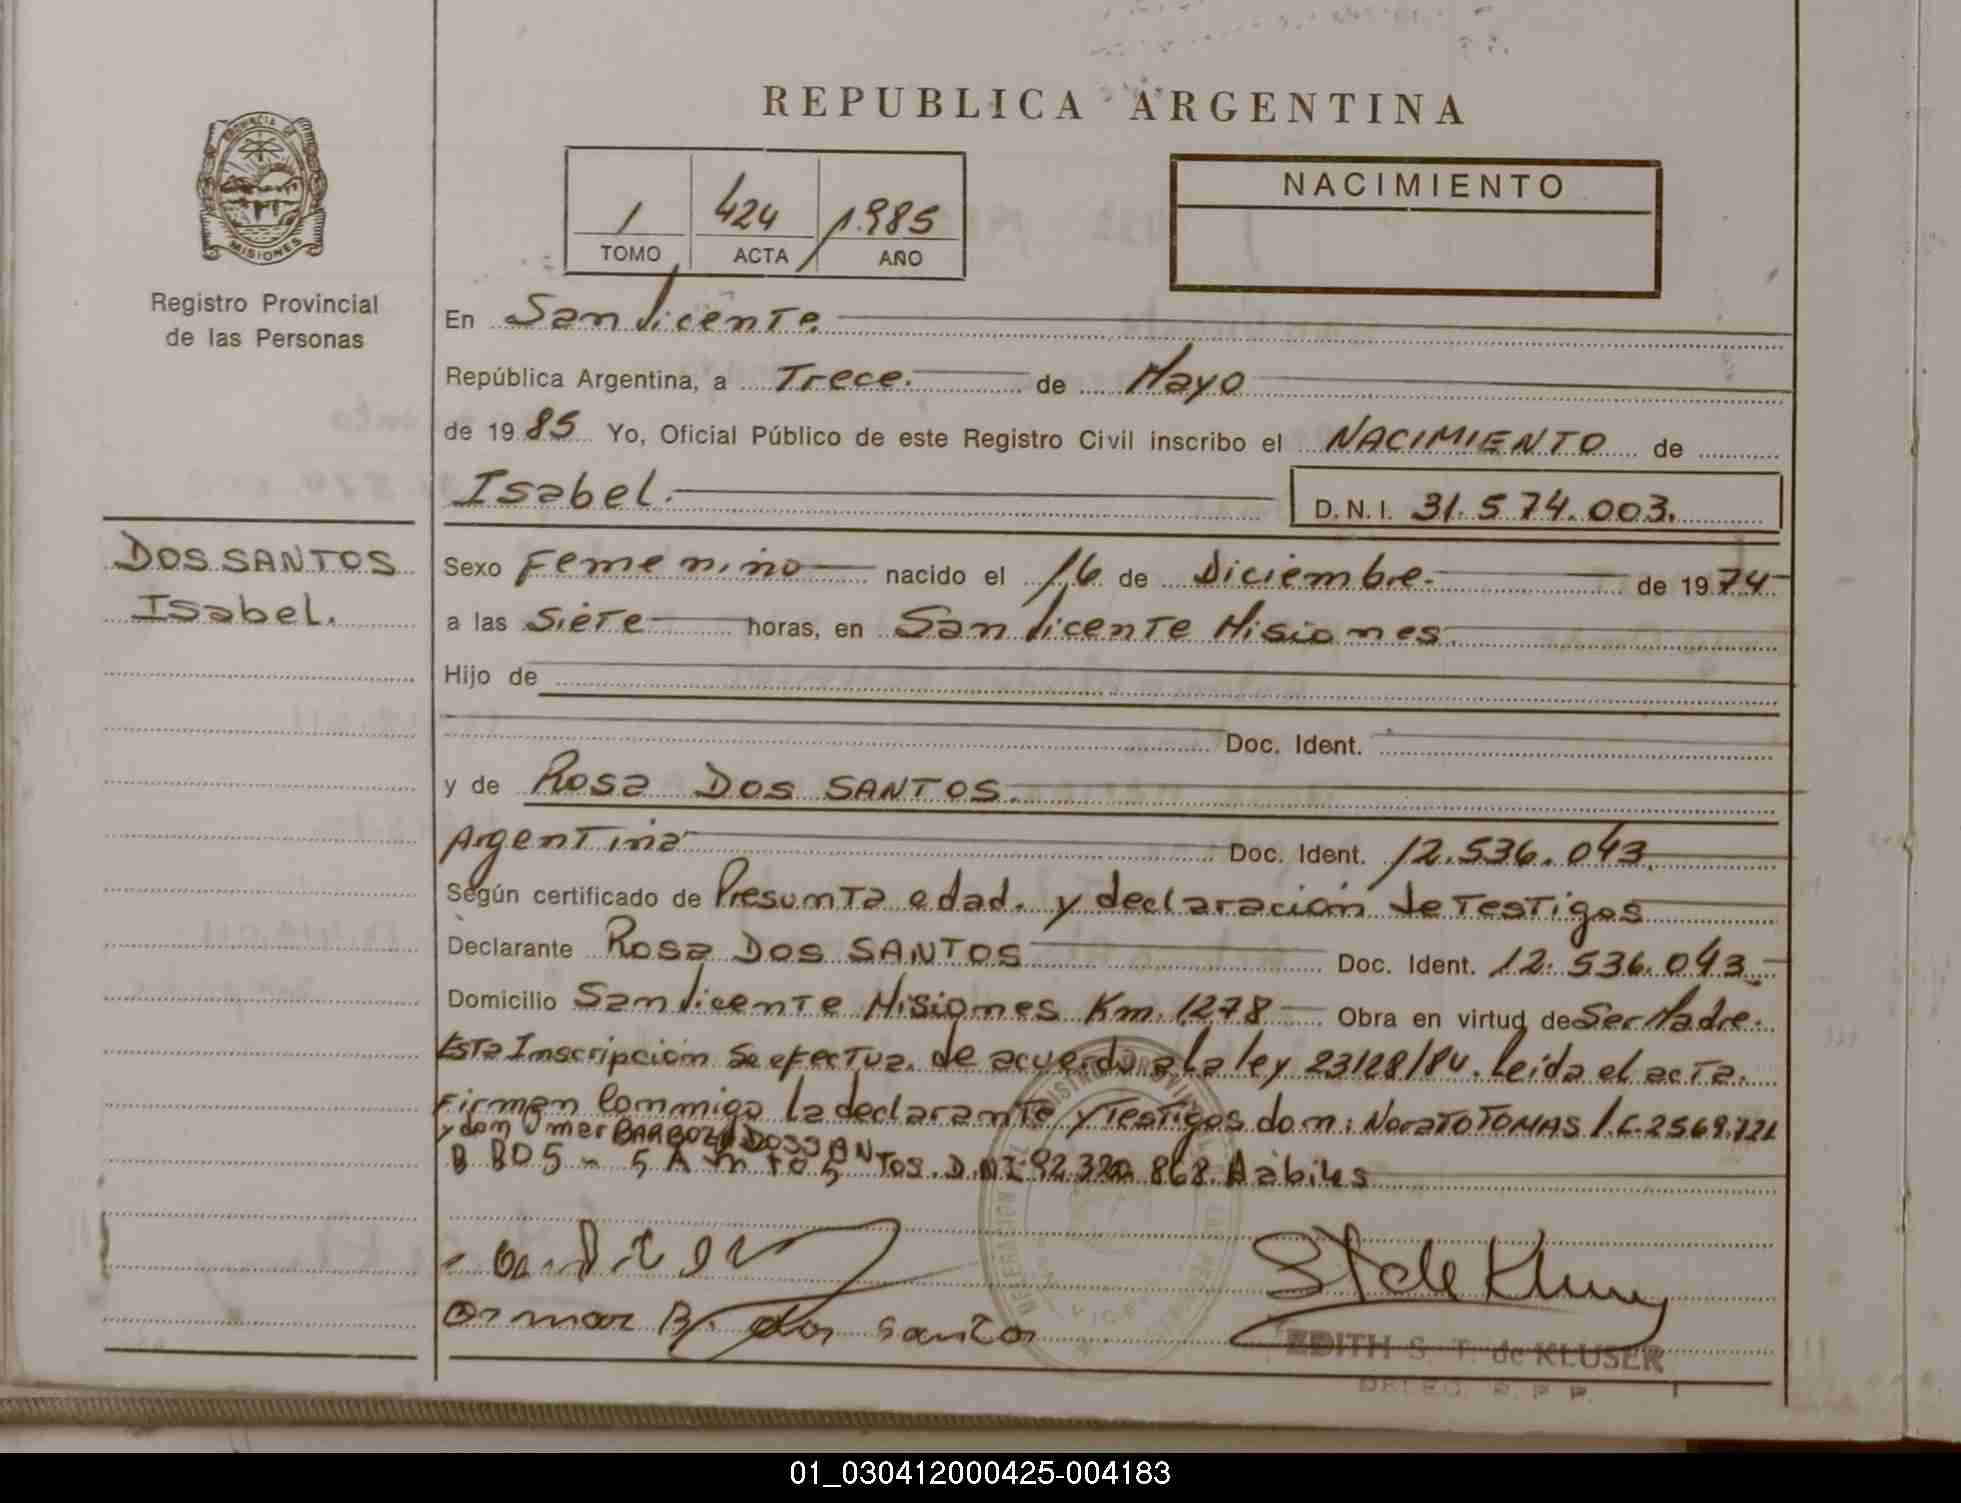 REPUBLICA ARGENTINA
PROVINCIA DE
MISIONES
Registro Provincial
de las Personas
1 424 1985
TOMO ACTA AÑO
NACIMIENTO
En San Vicente.
República Argentina, a Trece. de Mayo
de 1985 Yo, Oficial Público de este Registro Civil inscribo el NACIMIENTO de
Isabel. D.N.I. 31.574.003.
DOS SANTOS
Isabel.
Sexo Femenino nacido el 16 de Diciembre. de 1974
a las Siete horas, en San Vicente Misiones.
Hijo de
Doc. Ident.
y de Rosa DOS SANTOS.
Argentina Doc. Ident. 12.536.043.
Según certificado de Presunta edad. y declaración de Testigos
Declarante Rosa DOS SANTOS Doc. Ident. 12.536.043
Domicilio San Vicente Misiones Km. 1278 Obra en virtud de Ser Madre.
Esta Inscripción se efectua. de acuerdo a la ley 23128/84. Leida el acta.
Firman Conmigo la declarante y Testigos don: Norato TOMAS I.C. 2569.721
y don Omar BARBOZA DOS SAN
TOS. D.N.I. 92.320.868. Habiles
Osmar B. dos santos
EDITH S. T. de KLUSER
DELEG. R. P. P.
01_030412000425-004183